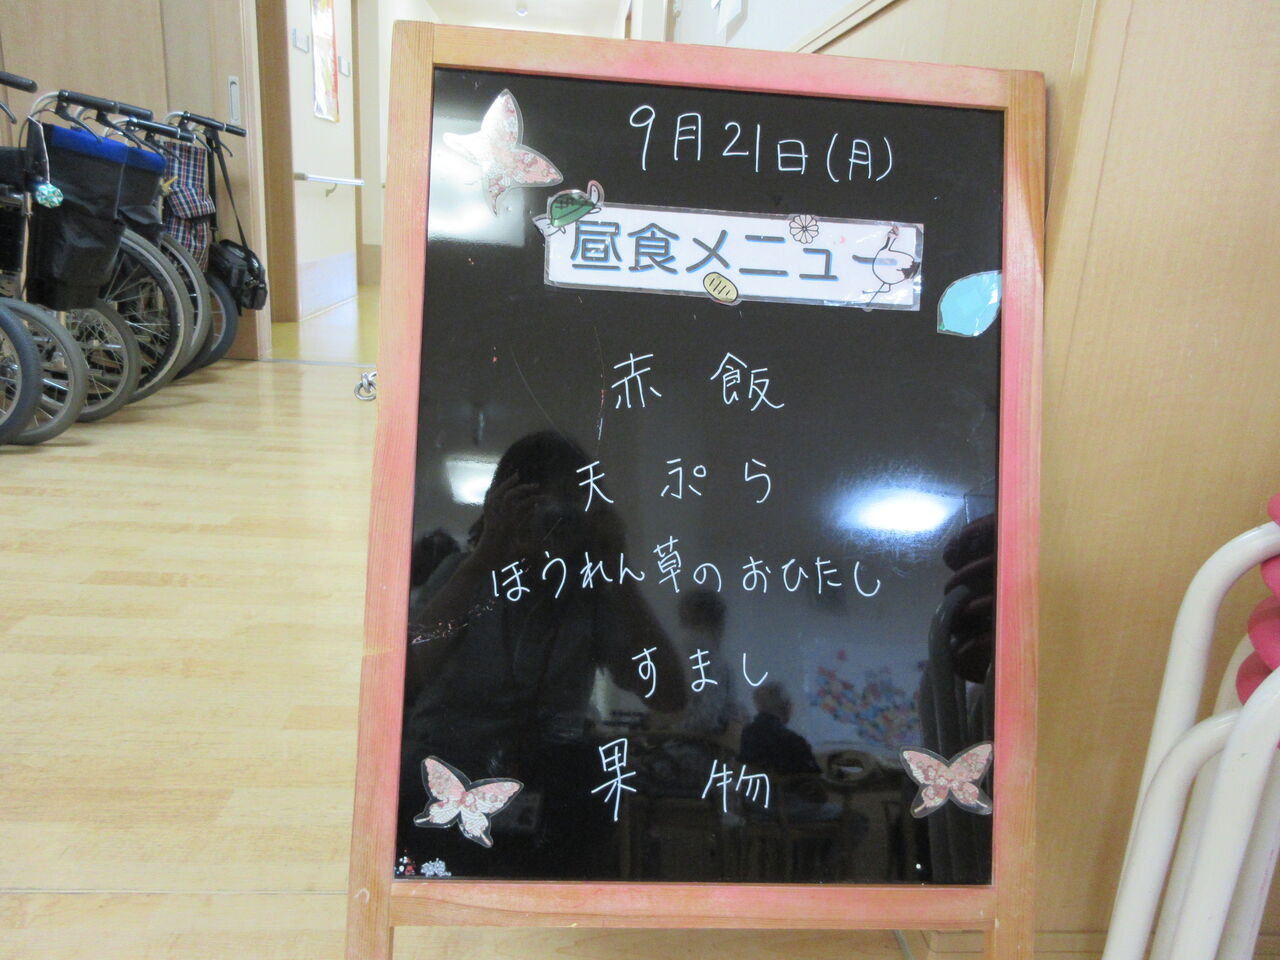 9月21日(月)
昼食メニュー
赤飯
天ぷら
ほうれん草のおひたし
すまし
果物